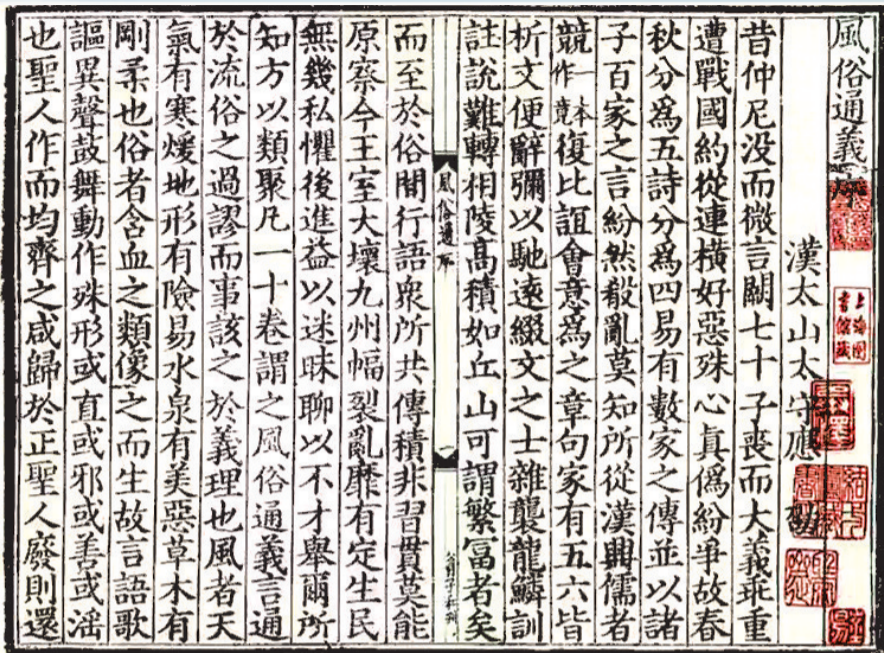 風俗通義序
漢太山太守應 劭
昔仲尼没而微言闕七十子喪而大義乖重
遭戰國約從連橫好惡殊心真僞紛爭故春
秋分爲五詩分爲四易有數家之傳並以諸
子百家之言紛然殽亂莫知所從漢興儒者
競一本作竟復比誼會意爲之章句家有五六皆
析文便辭彌以馳遠綴文之士雜襲龍鱗訓
註說難轉相陵高積如丘山可謂繁冨者矣
而至於俗閒行語衆所共傳積非習貫莫能
原察今王室大壞九州幅裂亂靡有定生民
無幾私懼後進益以迷昧聊以不才舉爾所
知方以類聚凡一十卷謂之風俗通義言通
於流俗之過謬而事該之於義理也風者天
氣有寒煖地形有險易水泉有美惡草木有
剛柔也俗者含血之類像之而生故言語歌
謳異聲鼓舞動作殊形或直或邪或善或滛
也聖人作而均齊之咸歸於正聖人廢則還
風俗通序
一
上海圖書館藏